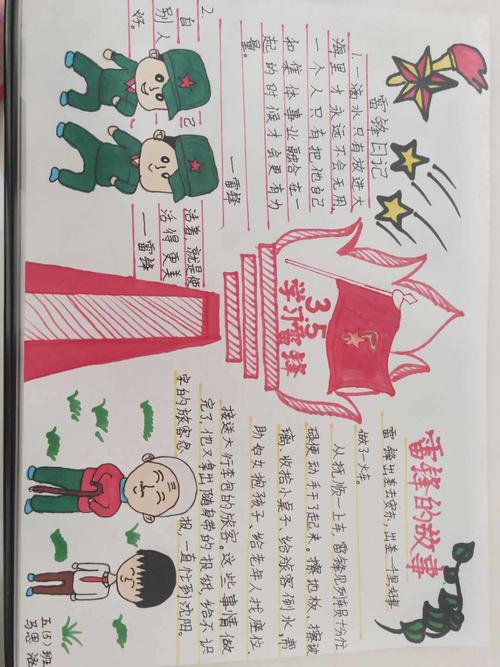 雷锋日记
1.一滴水只有放进大
海里才永远不会无用,
一个人只有把他自己
和集体事业融合在一
起的时候才会更有力
量。
—雷锋
2.
自己活着,就是使
别人活得更美
好。—雷锋
3.5
学习雷锋
雷锋的故事
雷锋出差去安东,出差一千里,好事
做了一火车。
从抚顺一上车,雷锋见列车员十分忙
碌便动手干了起来。擦地板、擦玻
璃、收拾小桌子、给旅客倒水、帮
助妇女抱孩子、给老年人找座位、
接送大行李包的旅客。这些事情做
完了,他又拿出随身带的报纸,给不识
字的旅客念报,一直忙到沈阳。
五(5)班
马思